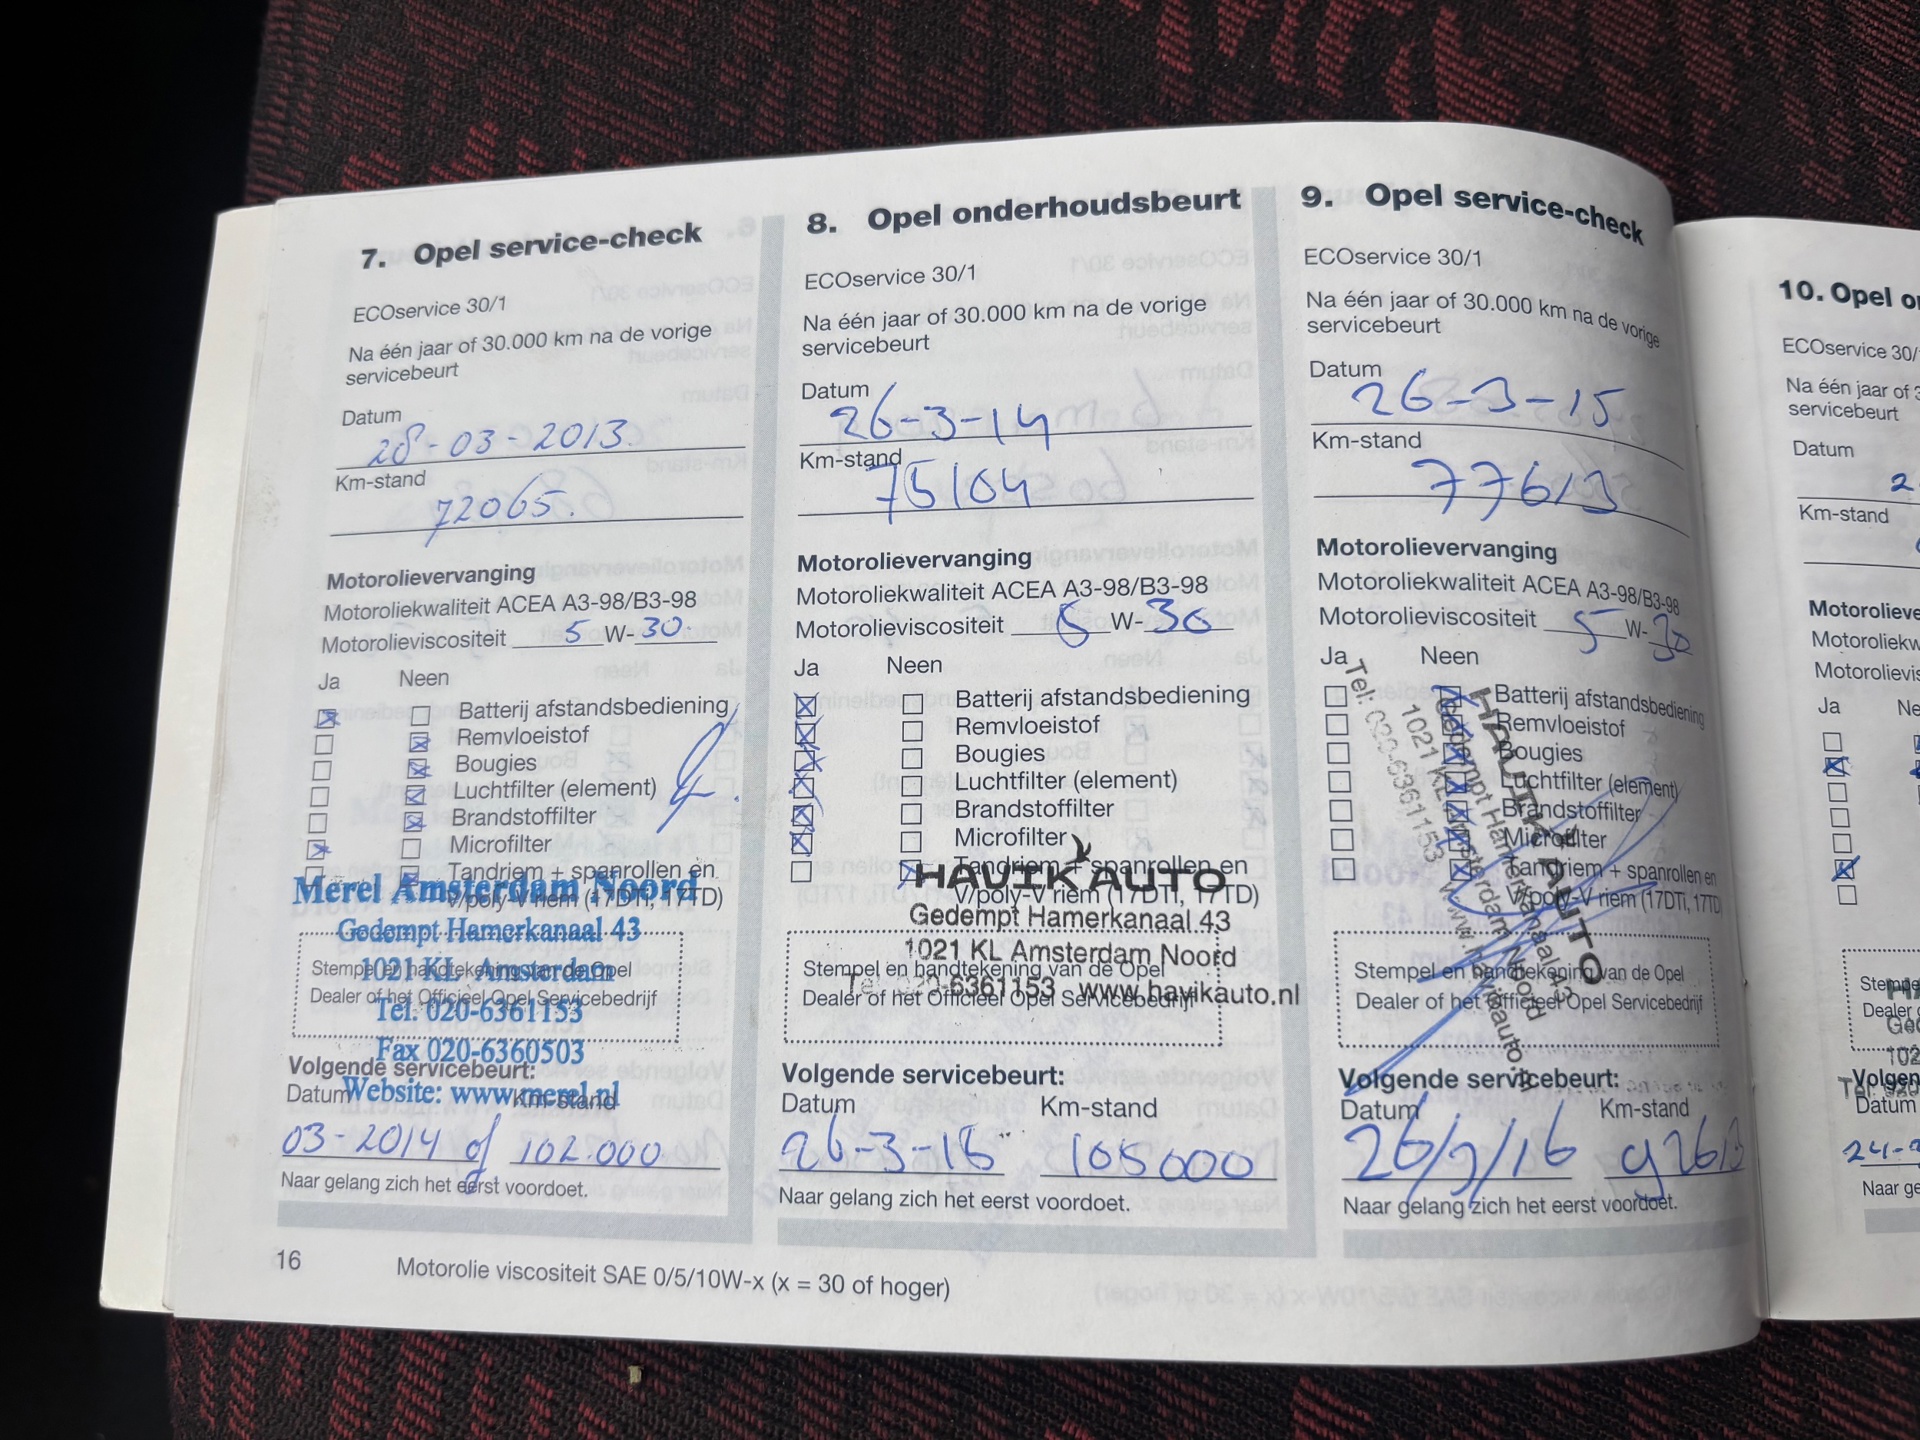 7. Opel service-check
ECOservice 30/1
Na één jaar of 30.000 km na de vorige
servicebeurt
Datum
28-03-2013.
Km-stand
72065.
Motorolievervanging
Motoroliekwaliteit ACEA A3-98/B3-98
Motorolieviscositeit 5 W-30
Ja Neen
Batterij afstandsbediening
Remvloeistof
Bougies
Luchtfilter (element)
Brandstoffilter
Microfilter
Tandriem + spanrollen en
V/poly-V riem (17DTI, 17TD)
Merel Amsterdam Noord
Gedempt Hamerkanaal 43
1021 KL Amsterdam
Tel. 020-6361153
Fax 020-6360503
Website: www.merel.nl
Stempel en handtekening van de Opel
Dealer of het Officieel Opel Servicebedrijf
Volgende servicebeurt:
Datum Km-stand
03-2014 of 102.000
Naar gelang zich het eerst voordoet.
8. Opel onderhoudsbeurt
ECOservice 30/1
Na één jaar of 30.000 km na de vorige
servicebeurt
Datum
26-3-14
Km-stand
75104
Motorolievervanging
Motoroliekwaliteit ACEA A3-98/B3-98
Motorolieviscositeit 5 W-30
Ja Neen
Batterij afstandsbediening
Remvloeistof
Bougies
Luchtfilter (element)
Brandstoffilter
Microfilter
Tandriem + spanrollen en
V/poly-V riem (17DTI, 17TD)
HAVIK AUTO
Gedempt Hamerkanaal 43
1021 KL Amsterdam Noord
Tel: 020-6361153 www.havikauto.nl
Stempel en handtekening van de Opel
Dealer of het Officieel Opel Servicebedrijf
Volgende servicebeurt:
Datum Km-stand
26-3-15 105000
Naar gelang zich het eerst voordoet.
9. Opel service-check
ECOservice 30/1
Na één jaar of 30.000 km na de vorige
servicebeurt
Datum
26-3-15
Km-stand
77613
Motorolievervanging
Motoroliekwaliteit ACEA A3-98/B3-98
Motorolieviscositeit 5 W-30
Ja Neen
Batterij afstandsbediening
Remvloeistof
Bougies
Luchtfilter (element)
Brandstoffilter
Microfilter
Tandriem + spanrollen en
V/poly-V riem (17DTI, 17TD)
HAVIK AUTO
Gedempt Hamerkanaal 43
1021 KL Amsterdam Noord
Tel: 020-6361153 www.havikauto.nl
Stempel en handtekening van de Opel
Dealer of het Officieel Opel Servicebedrijf
Volgende servicebeurt:
Datum Km-stand
26/3/16
Naar gelang zich het eerst voordoet.
16 Motorolie viscositeit SAE 0/5/10W-x (x = 30 of hoger)
10. Opel
ECOservice 30/
Na één jaar of
servicebeurt
Datum
Km-stand
Ja
Datum
Naar